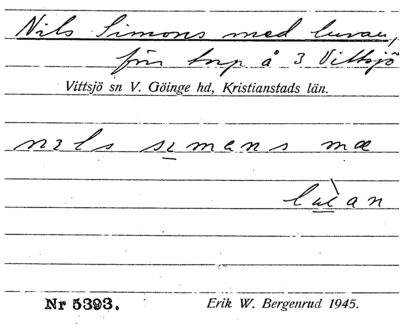 Nils Simons med luvan,
för torp å 3 Vittsjö
Vittsjö sn V. Göinge hd, Kristianstads län.
nils simans mæ
an
Nr 5393.
Erik W. Bergenrud 1945.